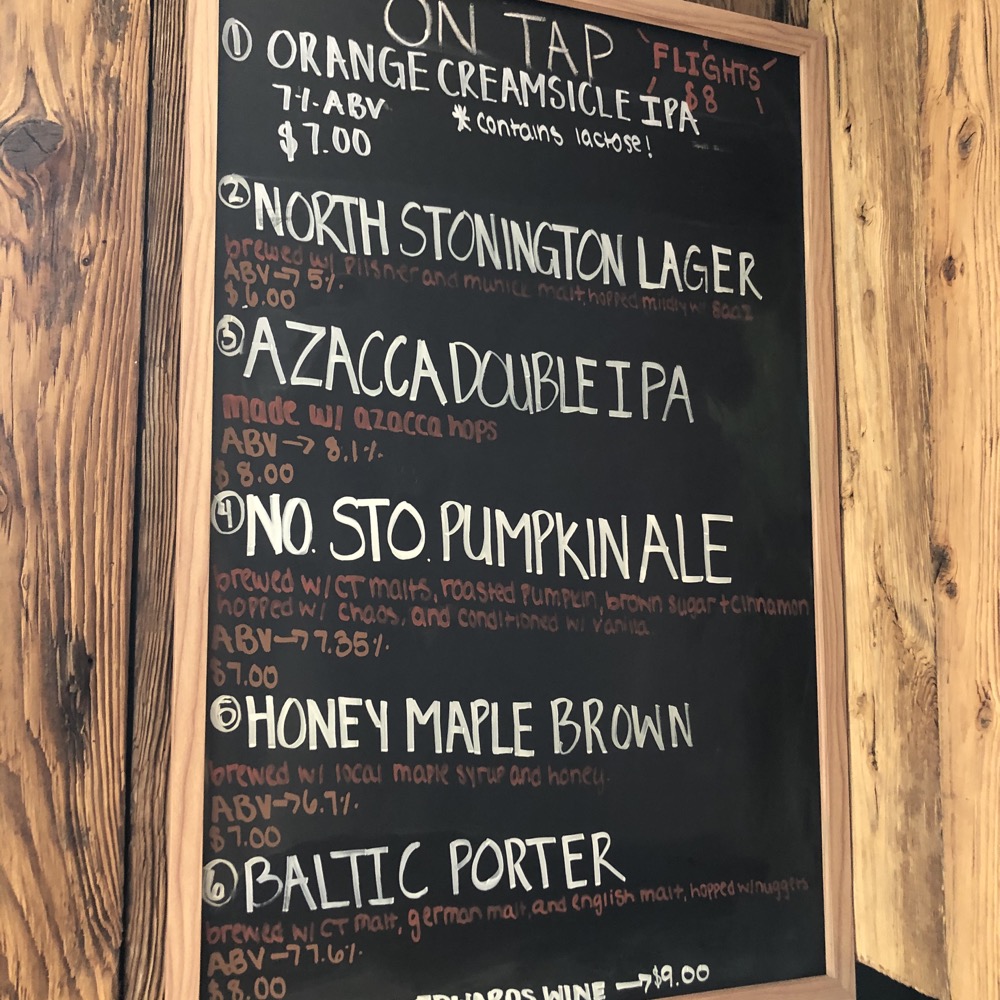 ON TAP
FLIGHTS
$8
① ORANGE CREAMSICLE IPA
7% ABV
* contains lactose!
$7.00
② NORTH STONINGTON LAGER
brewed w/ pilsner and munich malt, hopped mildly w/ saaz
ABV→5%
$6.00
③ AZACCA DOUBLE IPA
made w/ azacca hops
ABV→ 8.1%
$8.00
④ NO. STO. PUMPKIN ALE
brewed w/ CT malts, roasted pumpkin, brown sugar + cinnamon
hopped w/ chaos, and conditioned w/ vanilla.
ABV→7.35%
$7.00
⑤ HONEY MAPLE BROWN
brewed w/ local maple syrup and honey.
ABV→6.7%
$7.00
⑥ BALTIC PORTER
brewed w/ CT malt, german malt, and english malt, hopped w/ nuggets
ABV→7.6%
$8.00
EDWARDS WINE → $9.00